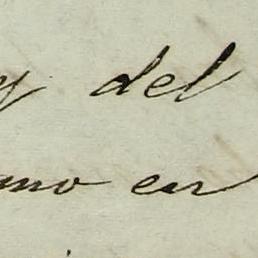 y del
mo en